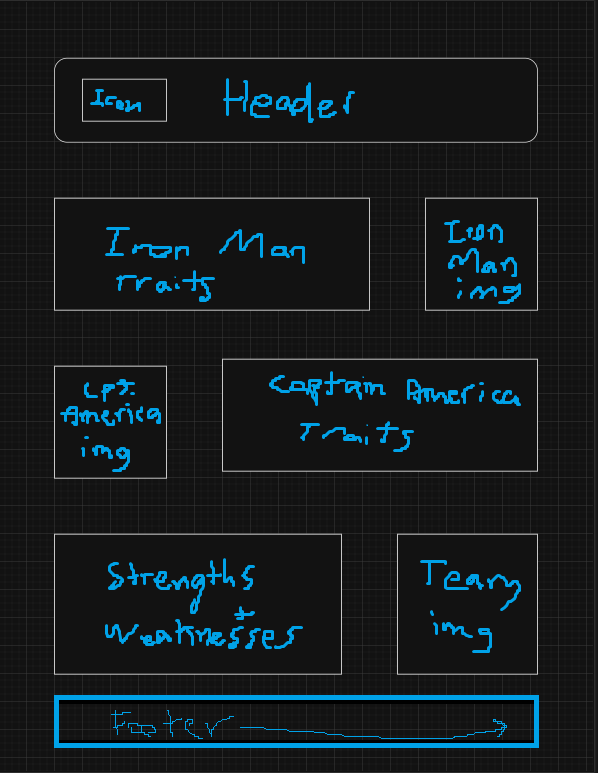 Icon
Header
Iron Man
Traits
Iron
Man
img
Cpt.
America
img
Captain America
Traits
Strengths
+
Weaknesses
Team
img
Footer